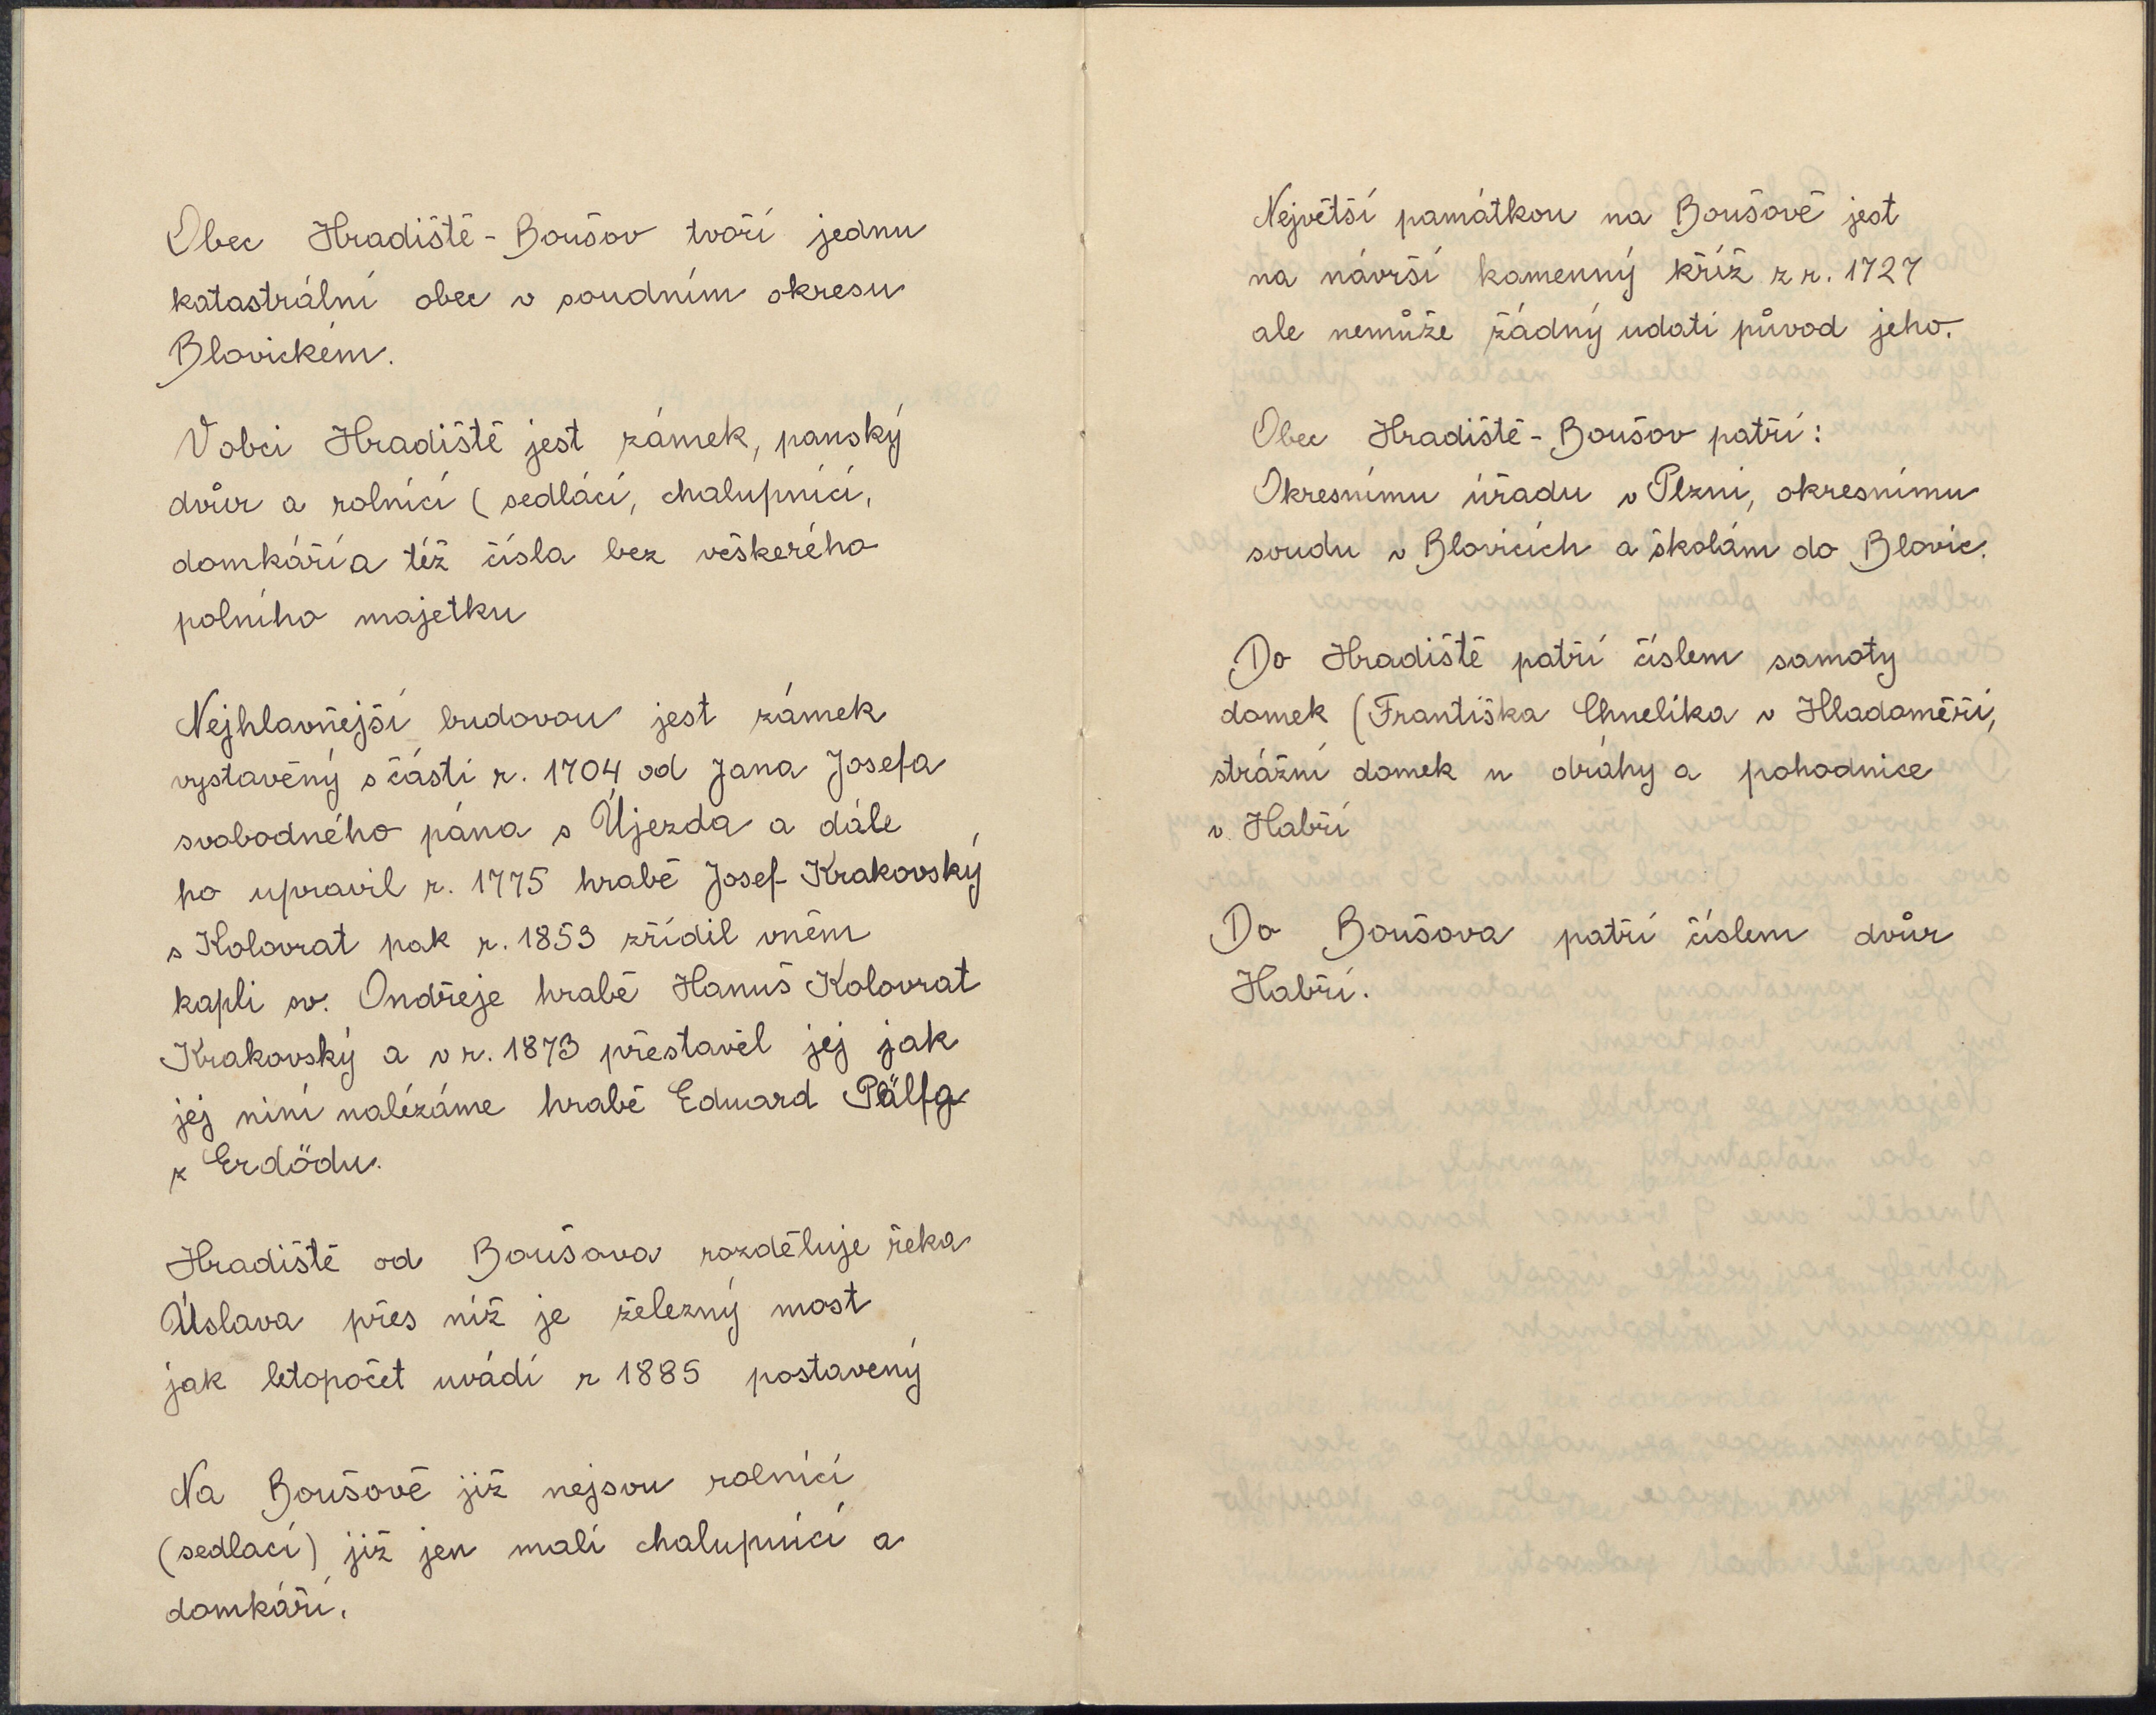 Obec Hradiště - Boušov tvoří jednu
katastrální obec v soudním okresu
Blovickém.
V obci Hradiště jest zámek, panský
dvůr a rolníci (sedláci, chalupníci,
domkáři a též čísla bez veškerého
polního majetku
Nejhlavnější budovou jest zámek
vystavěný s částí r. 1704 od Jana Josefa
svobodného pána s Újezda a dále
ho upravil r. 1775 hrabě Josef Krakovský
s Kolovrat pak r. 1853 zřídil vněm
kapli sv. Ondřeje hrabě Hanuš Kolovrat
Krakovský a v r. 1873 přestavěl jej jak
jej niní nalézáme hrabě Eduard Pälfg
z Erdödu.
Hradiště od Boušova rozděluje řeka
Úslava přes níž je železný most
jak letopočet uvádí r 1885 postavený
Na Boušově již nejsou rolníci
(sedlací) již jen malí chalupníci a
domkáří.
Největší památkou na Boušově jest
na návrší kamenný kříž z r. 1727
ale nemůže žádný udati původ jeho.
Obec Hradiště - Boušov patří:
Okresnímu úřadu v Plzni, okresnímu
soudu v Blovicích a školám do Blovic.
Do Hradiště patří číslem samoty
domek (Františka Chnelíka v Hladoměři,
strážní domek u dráhy a pohodnice
v. Habří
Do Boušova patří číslem dvůr
Habří.